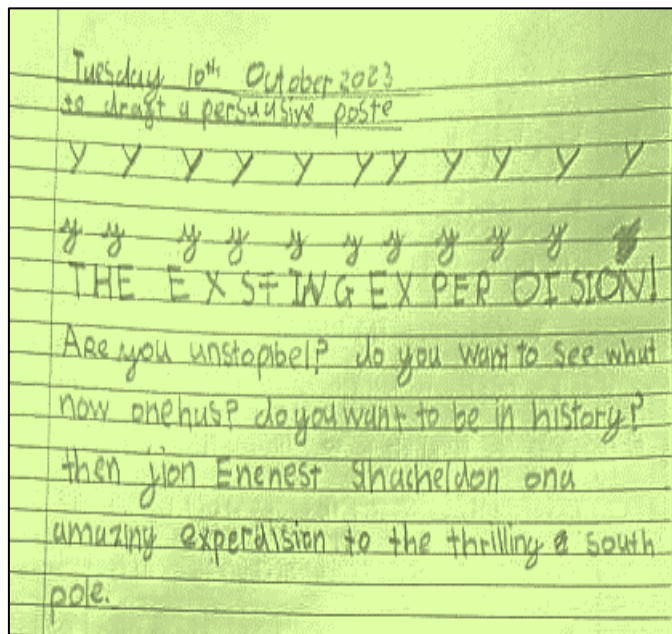 Tuesday 10th October 2023
to draft a persuasive poste
y y y y y y y y y y y
y y y y y y y y y y
THE EXSTING EXPEROISION!
Are you unstopbel? do you want to see what
now one hus? do you want to be in history?
then jion Enenest Shacheldon ona
amazing experdision to the thrilling south
pole.